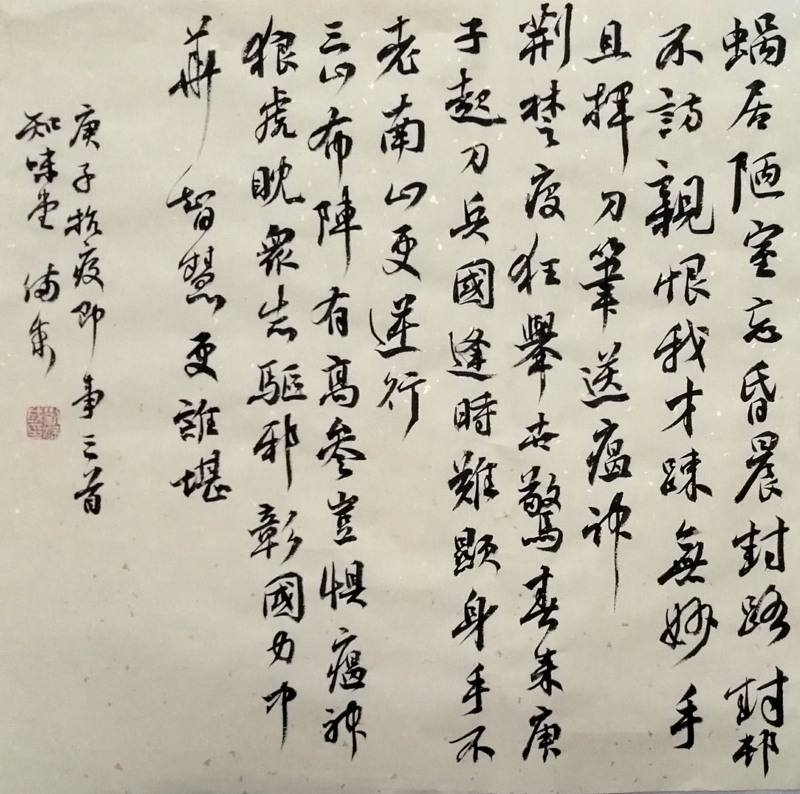 蝸居陋室忘昏晨封路封邨
不訪親恨我才疎無妙手
且揮刀筆送瘟神
荆楚疫狂舉世驚春来庚
子起刀兵國逢時難顯身手不
老南山更逆行
三山布陣有高參豈惧瘟神
狼虎眈衆志驅邪彰國力中
華智慧更誰堪
庚子抗疫即事三首
知味堂